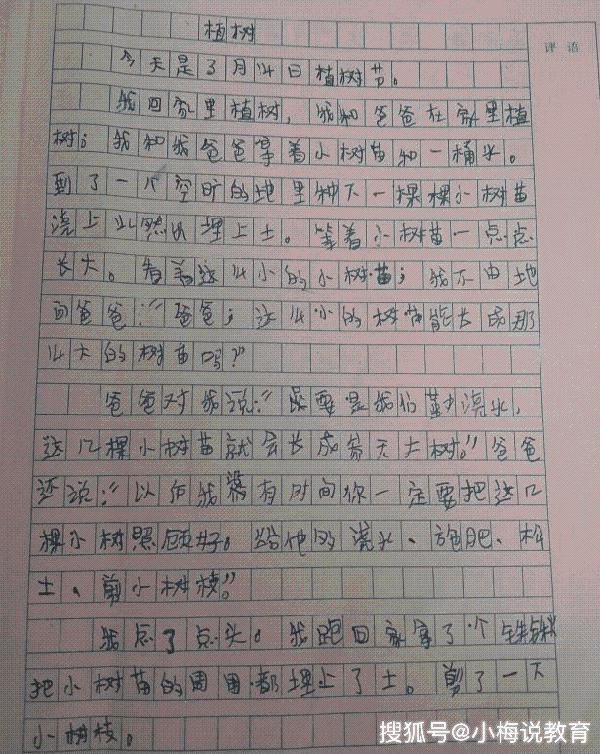 植树
评语
今天是3月14日植树节。
我回家里植树，我和爸爸在家里植
树；我和我爸爸拿着小树苗和一桶水。
到了一个空旷的地里种下一棵棵小树苗
浇上水然后埋上土。等着小树苗一点点
长大。看着这么小的小树苗；我不由地
问爸爸：“爸爸；这么小的树苗能长成那
么大的树苗吗？”
爸爸对我说：“只要是我们勤浇水，
这几棵小树苗就会长成参天大树。”爸爸
还说：“以后我没有时间你一定要把这几
棵小树照顾好。给他们浇水、施肥、松
土、剪小树枝。”
我点了点头。我跑回家拿了个铁锹
把小树苗的周围都埋上了土。剪了一下
小树枝。
搜狐号@小梅说教育